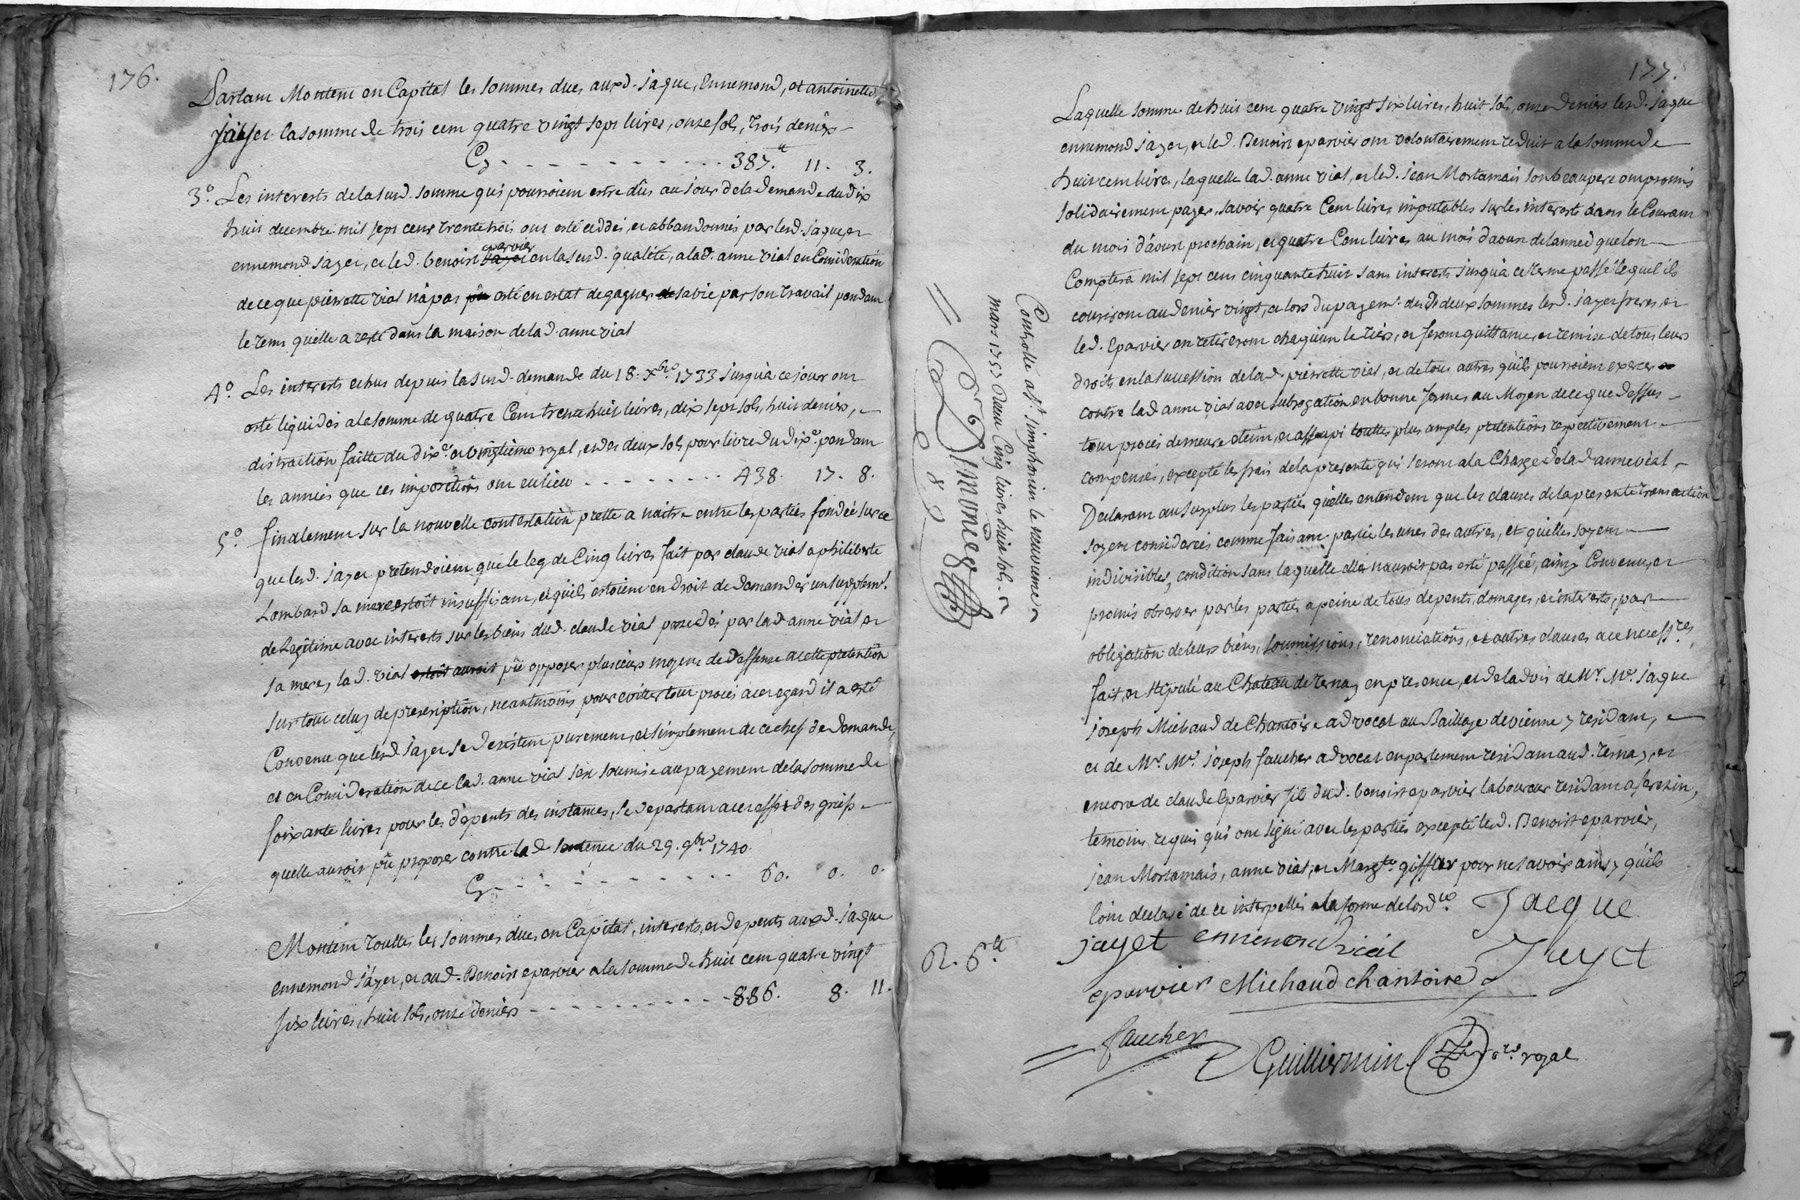 176.
Partant Montent en Capital les sommes dues auxd. jaque, Ennemond, et antoinette
jayet la somme de trois cent quatre vingt sept livres, onze sols, trois deniers
Cy - - - - - - - - - - - - 387.lt 11. 3.
3.° Les interests de la susd. somme qui pourroient estre dûs au jour de la demande du dix
huit decembre mil sept cent trente trois ont esté cedés, et abbandonnés par lesd. jaque, et
ennemond jayet, et led. benoist eparvier en la susd. qualité, a lad. anne vial en Consideration
de ce que pierrette vial n'a pas esté en estat de gagner sa vie par son travail pendant
le tems quelle a resté dans la maison de lad. anne vial
4.° Les interests echus depuis la susd. demande du 18. xbre 1733 jusqu'a ce jour ont
esté liquidés a la somme de quatre Cent trente huit livres, dix sept sols, huit deniers,
distraction faitte du dix.e et vingtieme royal, et des deux sols pour livre du dix.e pendant
les années que ces impositions ont eu lieu - - - - - - - - 438. 17. 8.
5.° finalement sur la nouvelle contestation prette a naitre entre les parties fondée sur ce
que lesd. jayet pretendoient que le leg de Cinq livres fait par claude vial a philiberte
Lombard sa mere estoit insuffisant, et qu'ils estoient en droit de demander un supplem.t
de Legitime avec interests sur les biens dud. claude vial possedés par lad. anne vial et
sa mere, lad. vial estoit auroit pû opposer plusieurs moyens de deffense a cette pretention
sur tout celuy de prescription, neantmoins pour eviter tout procés a cet egard il a esté
Convenu que lesd. jayet se desistent purement, et simplement de ce chef de demande,
et en Consideration de ce lad. anne vial s'est soumise au payement de la somme de
soixante livres pour les dépents des instances, se departant a cet effet des griefs
quelle auroit pû proposer contre la d. sentence du 29. 9bre 1740.
Cy - - - - - - - - - - - - 60. 0. 0.
Montent touttes les sommes dues en Capital, interests, et depents auxd. jaque
ennemond jayet, et aud. Benoist eparvier a la somme de huit cent quatre vingt
six livres, huit sols, onze deniers - - - - - - - - - - 886. 8. 11.
177.
Laquelle somme de huit cent quatre vingt six livres, huit sols, onze deniers lesd. jaque
ennemond jayet, et led. Benoist eparvier ont volontairement reduit a la somme de
huit cent livres, laquelle lad. anne vial, et led. jean Mortamais son beaupere ont promis
solidairement payer, savoir quatre Cent livres imputables sur les interests dans le Courant
du mois d'aoust prochain, et quatre Cent livres au mois d'aoust de lannée que lon
Comptera mil sept cent cinquante huit sans interests jusqu'a ce terme passé lequel ils
couriront au denier vingt, et lors du payem.t desd. deux sommes lesd. jayet freres, et
led. Eparvier en retireront chaqu'un le tiers, et feront quittance, et remise de tous leurs
droits en la succession de lad. pierrette vial, et de tous autres qu'ils pourroient exercer
contre lad. anne vial avec subrogation en bonne forme, au Moyen de ce que dessus
tout procés demeure eteint, et assoupi touttes plus amples pretentions respectivement
compensés, excepté les frais de la presente qui seront a la Charge de lad. anne vial
Declarant au surplus les parties qu'elles entendent que les clauses de la presente transaction
soyent considerées comme faisant partie les unes des autres, et quelles soyent
indivisibles, condition sans laquelle elle n'auroit pas esté passée, ainsy Convenu, et
promis observer par les parties a peine de tous depents, domages, et interests, par
obligation de leurs biens, soumissions, renonciations, et autres clauses a ce necess.res,
fait, et stipulé au Chateau de ternay en presence, et de ladvis de M.r M.e jaque
joseph Michaud de Chantoire advocat au Baillage de vienne y residant,
et de M.r M.e joseph faucher advocat en parlement residant aud. ternay, et
encore de claude Eparvier fils dud. benoist eparvier laboureur residant a serezin,
temoins requis qui ont signé avec les parties excepté led. Benoist eparvier,
jean Mortamais, anne vial, et Marg.te giffler pour ne savoir ainsy qu'ils
l'ont declaré de ce interpellés a la forme de lord.ce Jacque
jayet ennemond vial Jayet
eparvier Michaud chantoire
faucher
Guilliermin no.re royal
R. 6.lt
Controllé a S.t simphorien le neuvieme
mars 1757 Reçu Cinq livres huit sols.